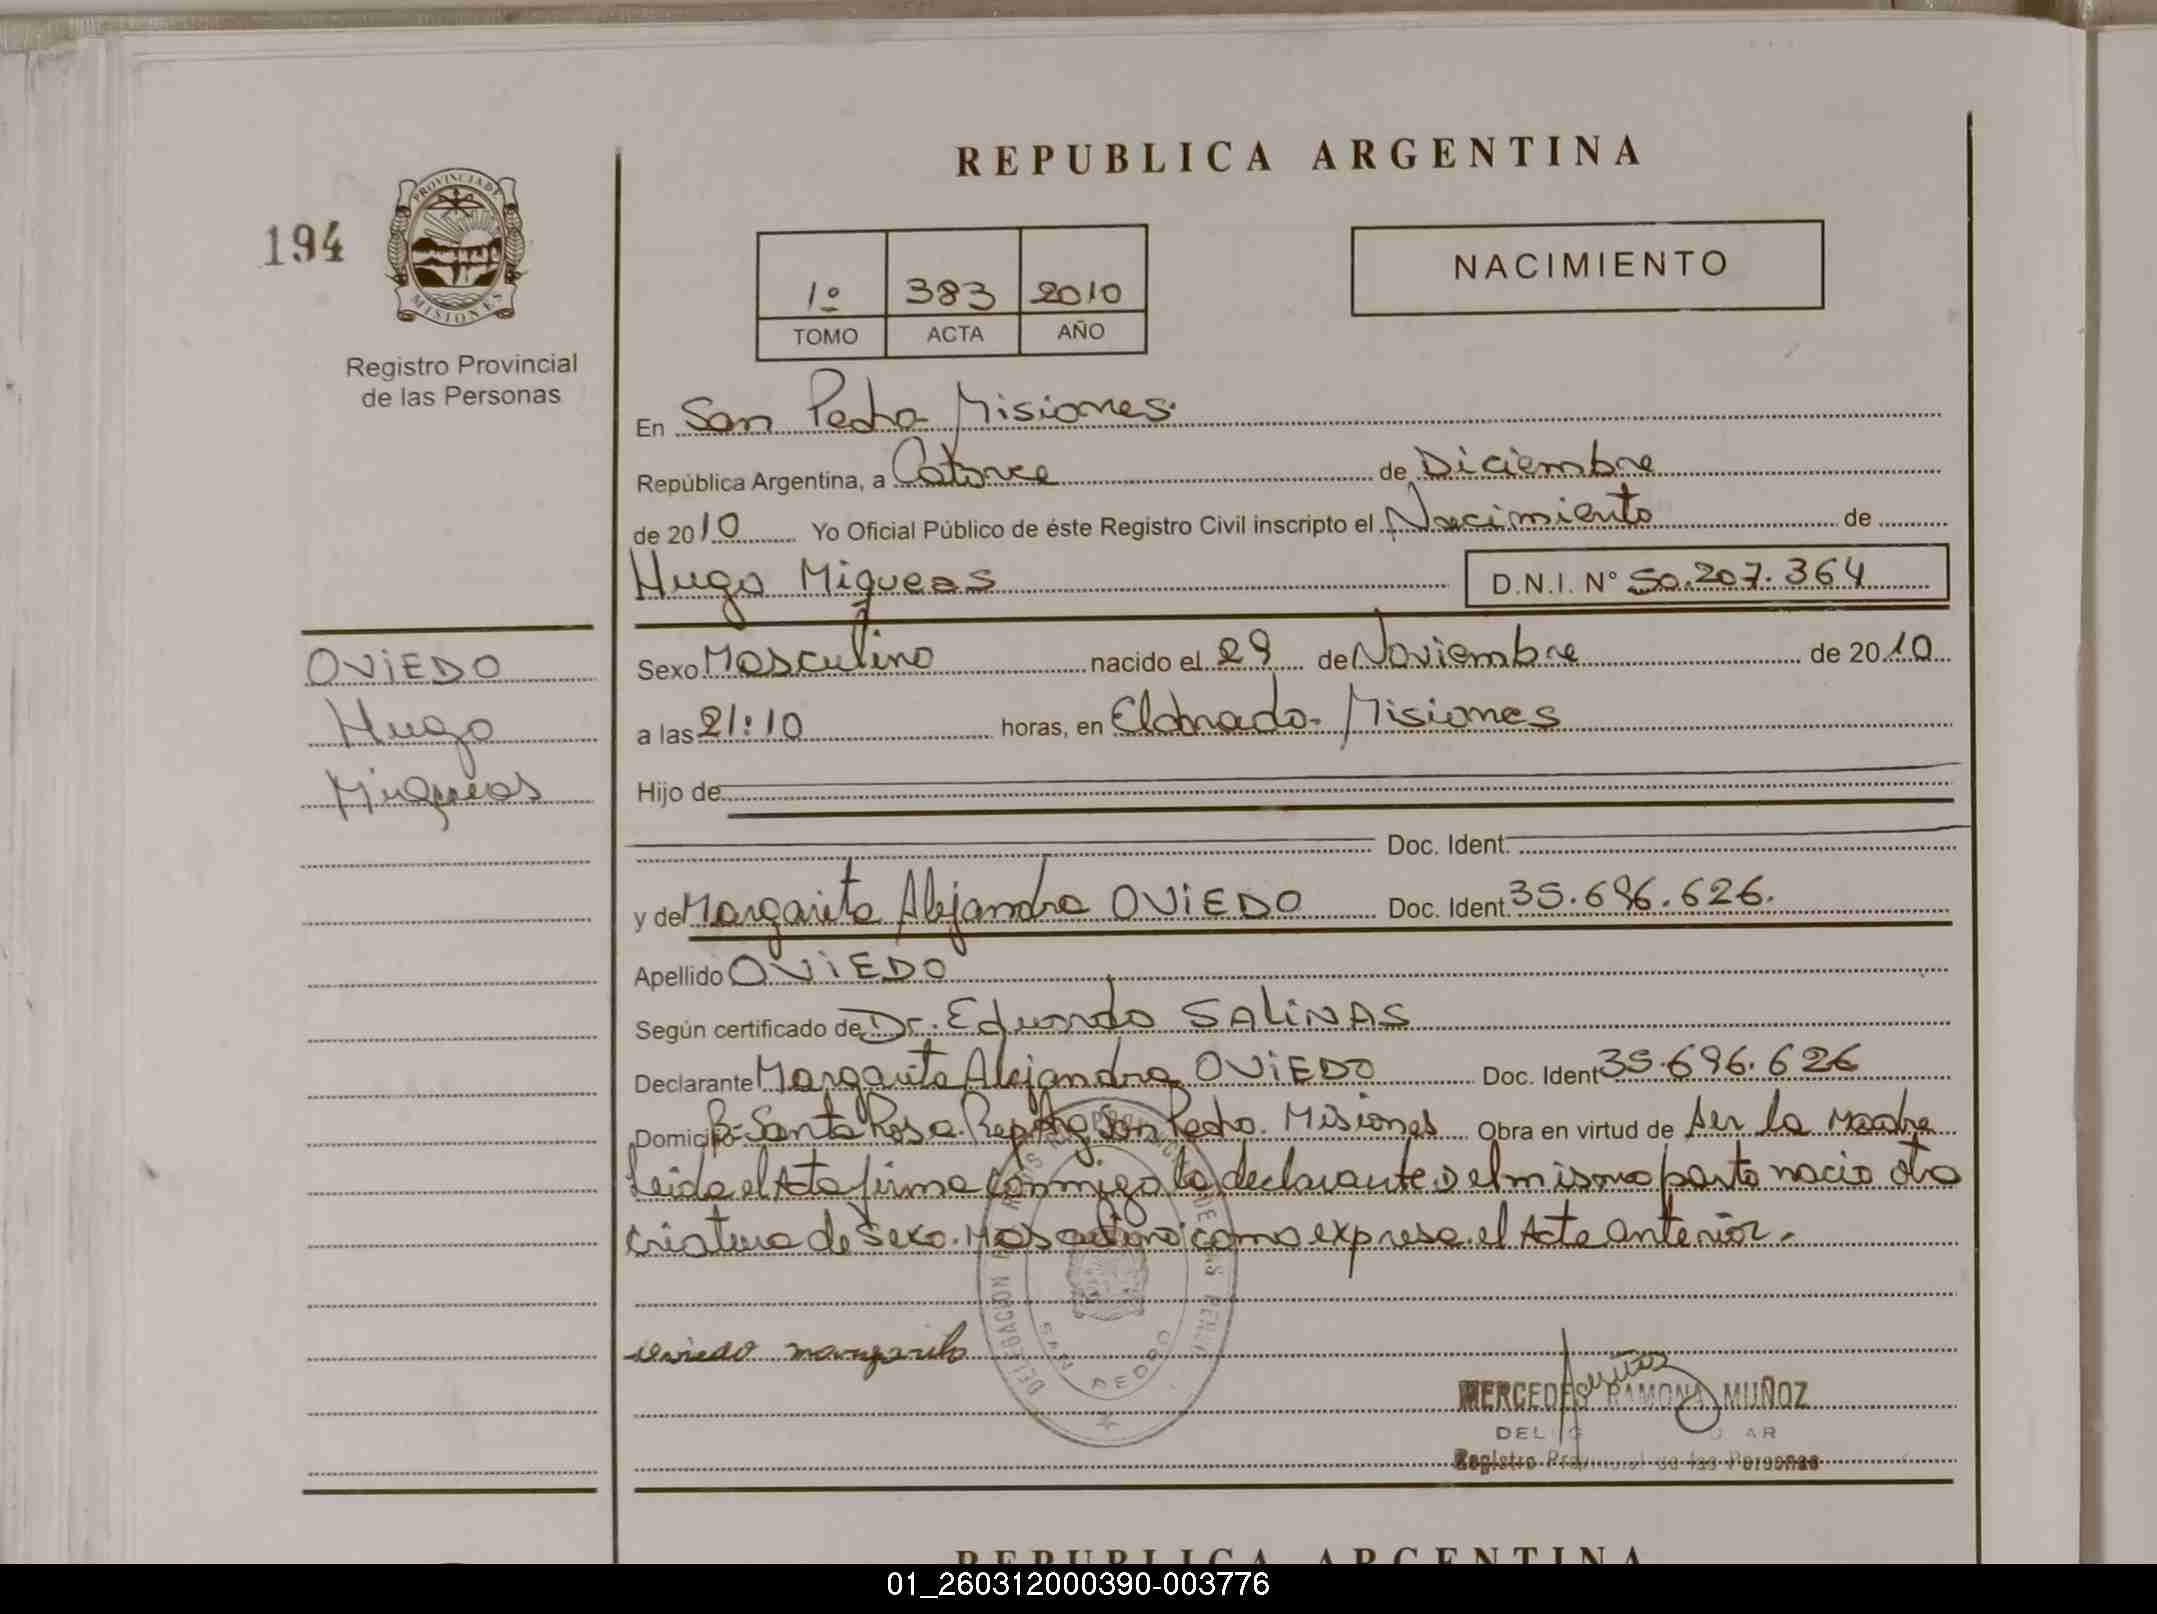 REPUBLICA ARGENTINA
194
PROVINCIA DE
MISIONES
Registro Provincial
de las Personas
1º 383 2010
TOMO ACTA AÑO
NACIMIENTO
En San Pedro Misiones.
República Argentina, a Catorce de Diciembre
de 2010 Yo Oficial Público de éste Registro Civil inscripto el Nacimiento de
Hugo Miqueas D.N.I. N° 50.207.364
OVIEDO
Hugo
Miqueas
Sexo Masculino nacido el 29 de Noviembre de 2010
a las 21:10 horas, en Eldorado- Misiones
Hijo de
Doc. Ident.
y de Margarita Alejandra OVIEDO Doc. Ident. 35.696.626.
Apellido OVIEDO
Según certificado de Dr. Eduardo SALINAS
Declarante Margarita Alejandra OVIEDO Doc. Ident 35.696.626
Domicilio B- Santa Rosa. Rep Arg San Pedro. Misiones Obra en virtud de ser la Madre
Leida el Acta firma conmigo la declarante. Del mismo parto nacio otra
criatura de Sexo. Masculino como expresa el Acta anterior.-
Oviedo margarita
DELEGACION
SAN PEDRO
MERCEDES RAMONA MUÑOZ
Registro Provincial de las Personas
REPUBLICA ARGENTINA
01_260312000390-003776